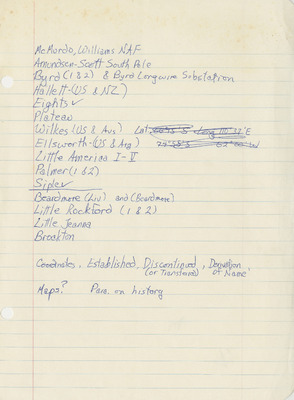 McMurdo, Williams NAF
Amundsen-Scott South Pole
Byrd (1 & 2) & Byrd Longwire Substation
Hallett-(US & NZ)
Eights ✓
Plateau
Wilkes (US & Aus) Lat 66°15'S Long 110°32'E
Ellsworth-(US & Arg)
Little America I-V
Palmer (1 & 2)
Siple ✓
Beardmore (Liv) and (Beardmore)
Little Rockford (1 & 2)
Little Jeanna
Brockton
Coordinates, Established, Discontinued, Derivation
(or Transferred) of Name,
Maps? Para. on history